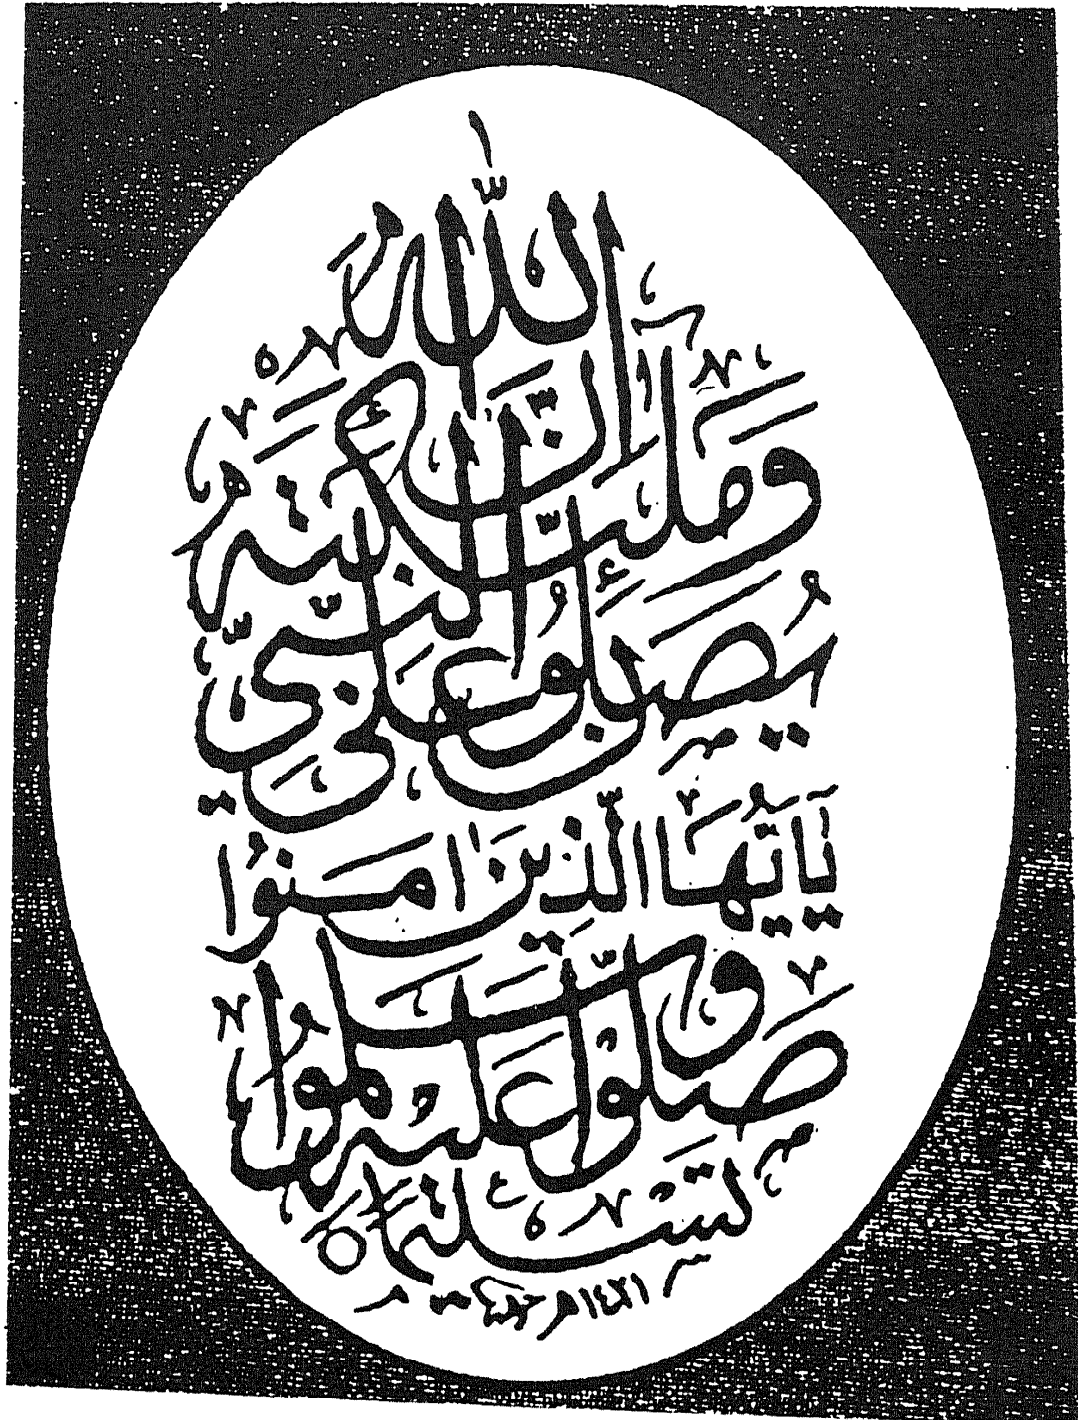 إِنَّ اللّٰهَ
وَمَلٰٓئِكَتَهُ
يُصَلُّونَ عَلَى النَّبِيِّ
يٰٓاَيُّهَا الَّذِينَ اٰمَنُوا
صَلُّوا عَلَيْهِ وَسَلِّمُوا
تَسْلِيمًا